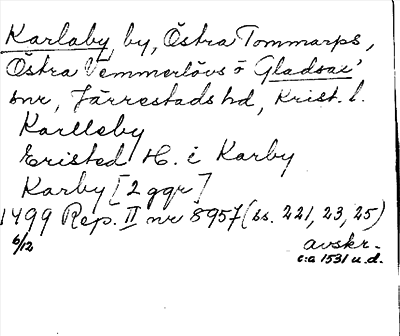 Karlaby, by, Östra Tommarps,
Östra Vemmerlövs o Gladsax'
snr, Järrestads hd, Krist. l.
Karlleby
Eristed H. i Karby
Karby [2 ggr]
1499 Rep. II nr 8957 (ss. 221, 23, 25)
6/12 avskr.
c:a 1531 u.d.